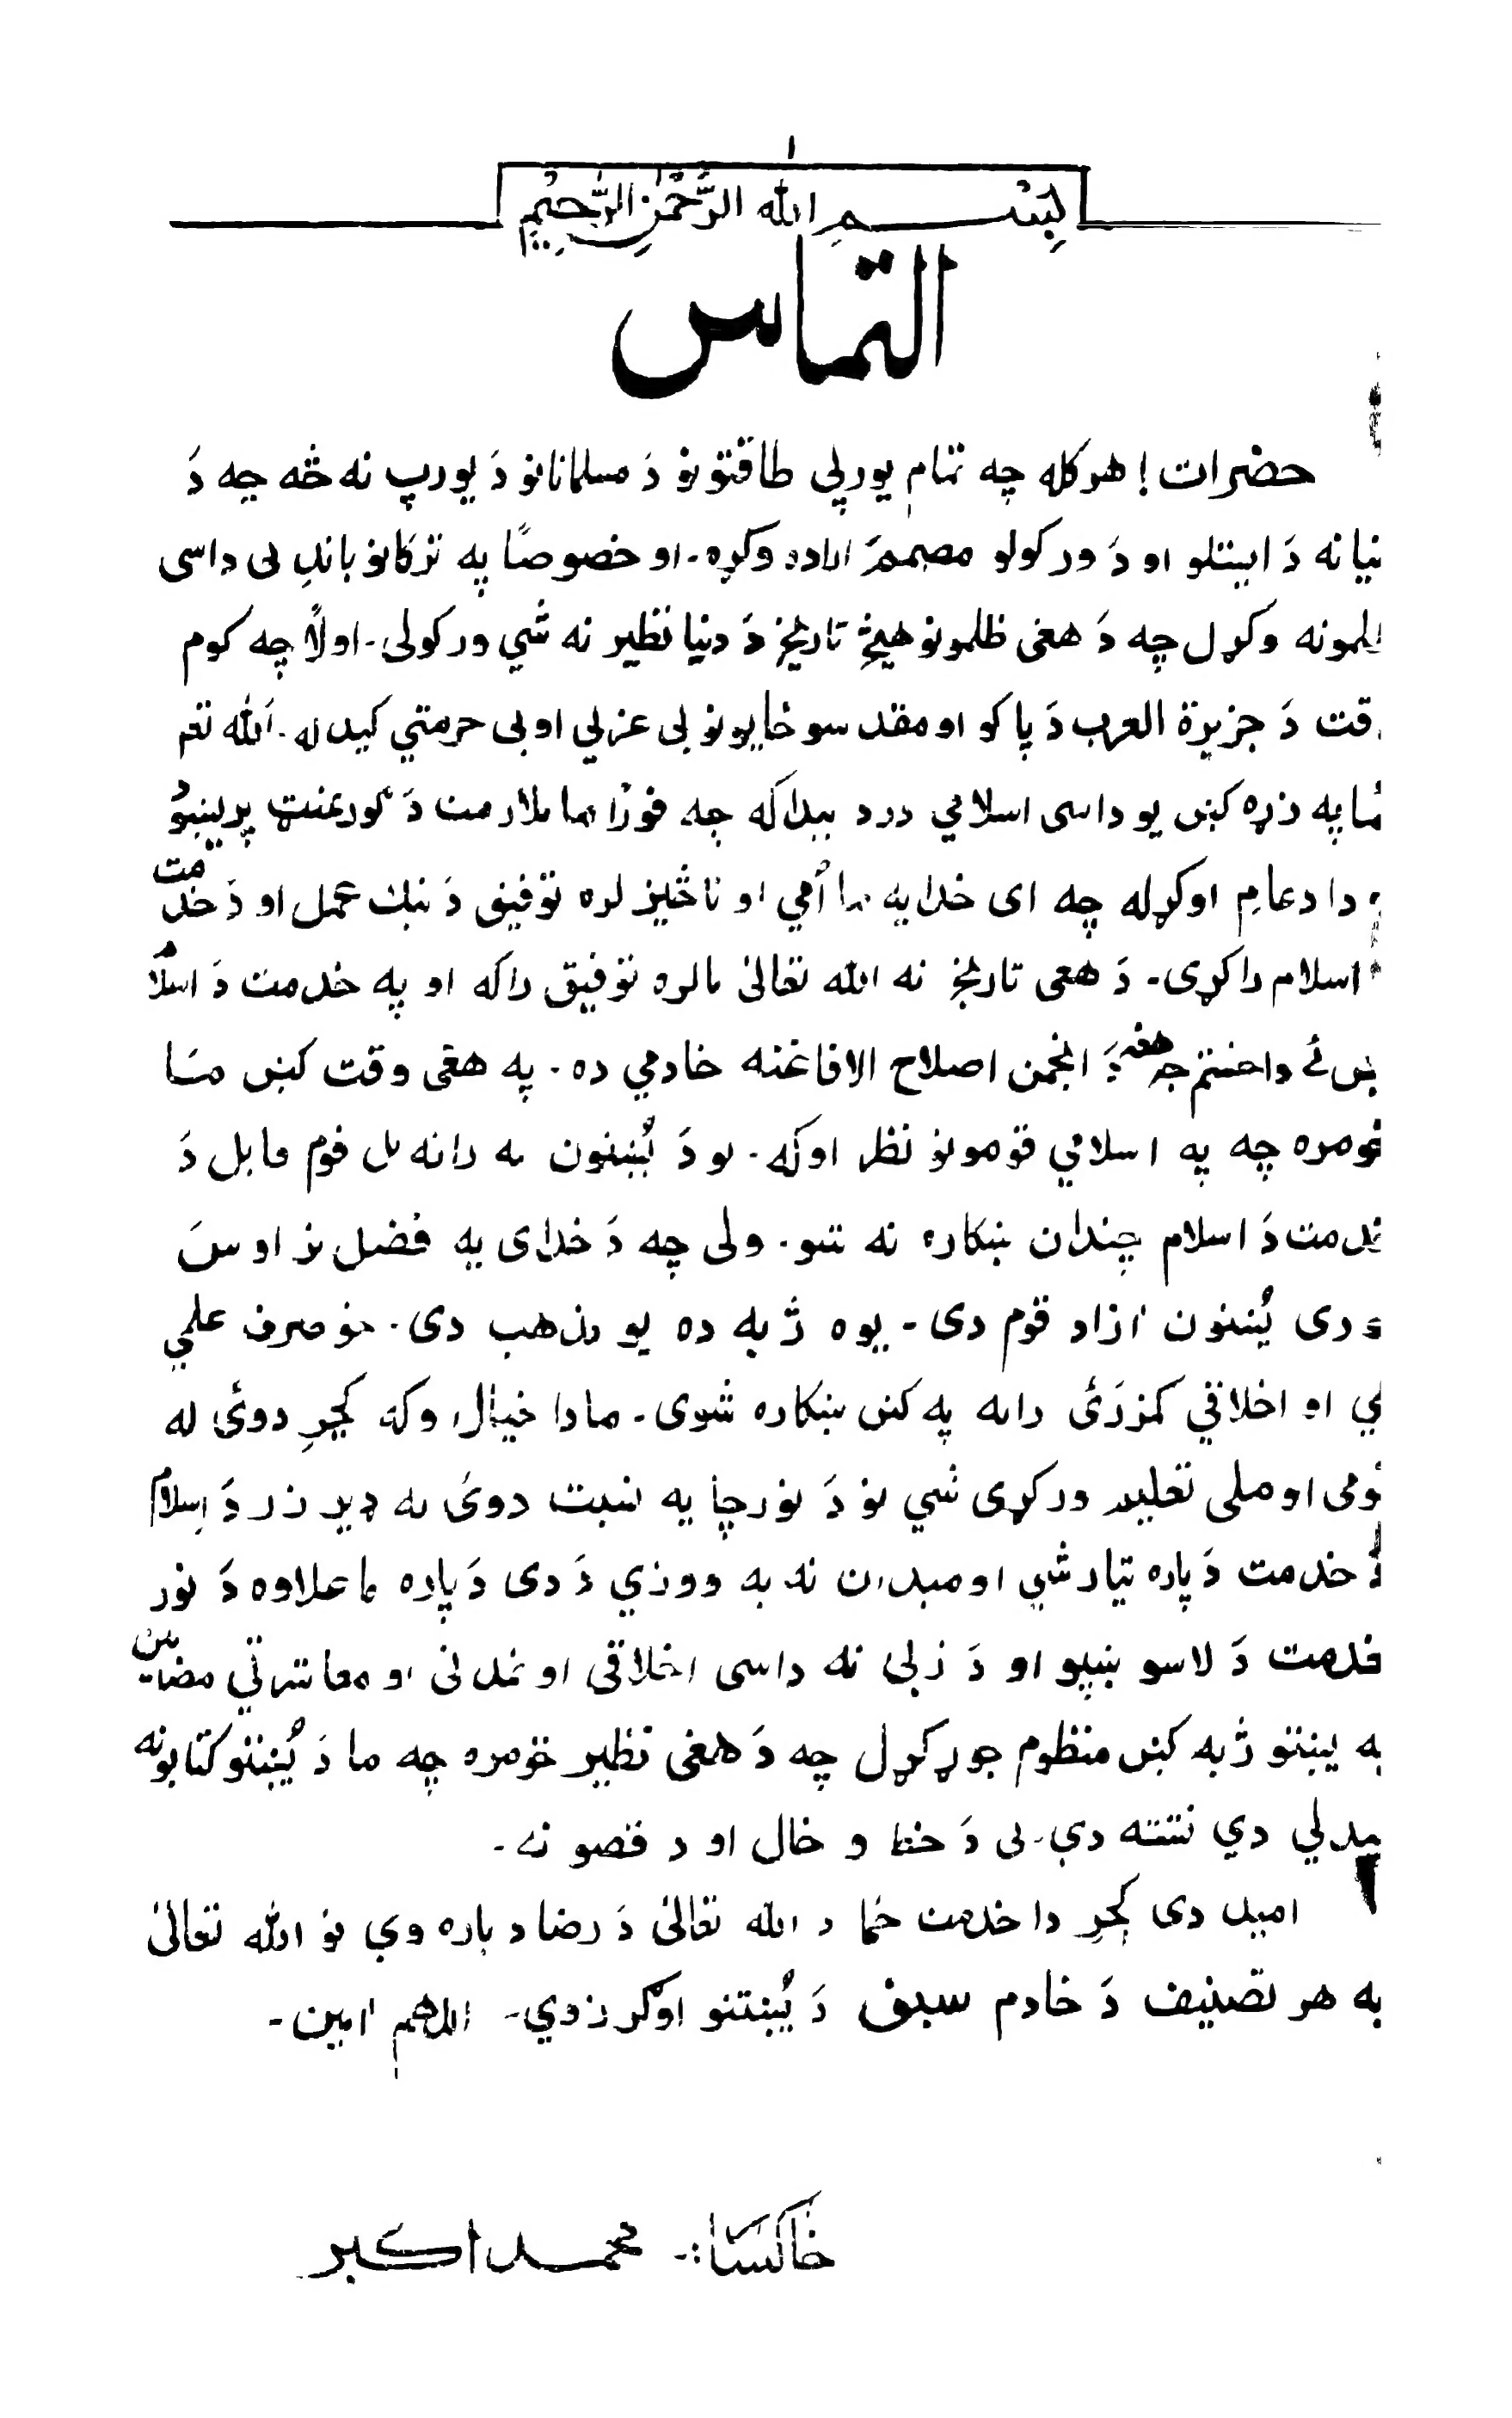 ١
بِسْمِ اللهِ الرَّحْمٰنِ الرَّحِيْمِ
التماس
حضرات! هرکله چه تمام یورپی طاقتونو دَ مسلمانانو دَ یورپ نه څه چه دَ
نیا نه دَ ایستلو او دَ ورکولو مصمم اراده وکړه۔ او خصوصًا په ترکانو باندِ ئی داسی
لمونه وکړل چه دَ هغی ظلمونو هیڅ تاریخ دَ دنیا نظیر نه شي ورکولی۔ اولاً چه کوم
قت دَ جزیرة العرب دَ پاکو او مقدسو ځایونو بی عزتي او بی حرمتي کیدله۔ الله تعم
ما په زړه کښ یو داسی اسلامي درد پیدا که چه فورًا ما ملازمت دَ گورنمنټ پریښوُ
دا دعامِ اوکړله چه ای خدایه ما اُمي او ناڅیز لره توفیق دَ نیك عمل او دَ خدمت
اسلام راکړی۔ دَ هغی تاریخ نه الله تعالیٰ مالره توفیق راکه او په خدمت دَ اسلام
ښ ئے واخستم چه هغه دَ انجمن اصلاح الافاغنه خادمي ده۔ په هغی وقت کښ مَا
څومره چه په اسلامي قومونو نظر اوکه۔ نو دَ پُښتون نه راته بل قوم قابل دَ
خدمت دَ اسلام چندان ښکاره نه شو۔ ولی چه دَ خدای په فضل تر اوسَ
دی پُښتون ازاد قوم دی۔ یوه ژبه ده یو مذهب دی۔ خو صرف علمي
ي او اخلاقي کمزرَئ راته په کښ ښکاره شوی۔ ما دا خیال وکه کچرِ دوئ له
ومی او ملی تعلیم ورکړی شي نو دَ نورچا په نسبت دوئ به ډیر زر دَ اسلام
دَ خدمت دَ پاره تیار شي او میدان ته به ووزي دَ دی دَ پاره ما علاوه دَ نور
خدمت دَ لاسو ښپو او دَ ژبی نه داسی اخلاقی او تمدنی او معاشرتي مضامین
په پښتو ژبه کښ منظوم جوړ کړل چه دَ هغی نظیر څومره چه ما دَ پُښتو کتابونه
یدلي دي نشته دي۔ بی دَ خط و خال او د قصو نه۔
امید دی کچرِ دا خدمت ځما د الله تعالیٰ دَ رضا د پاره وي نو الله تعالیٰ
به هر تصنیف دَ خادم سبق دَ پُښتنو اوګرزوي۔ اللهم امین۔
خاکسار:۔ محمد اکبر